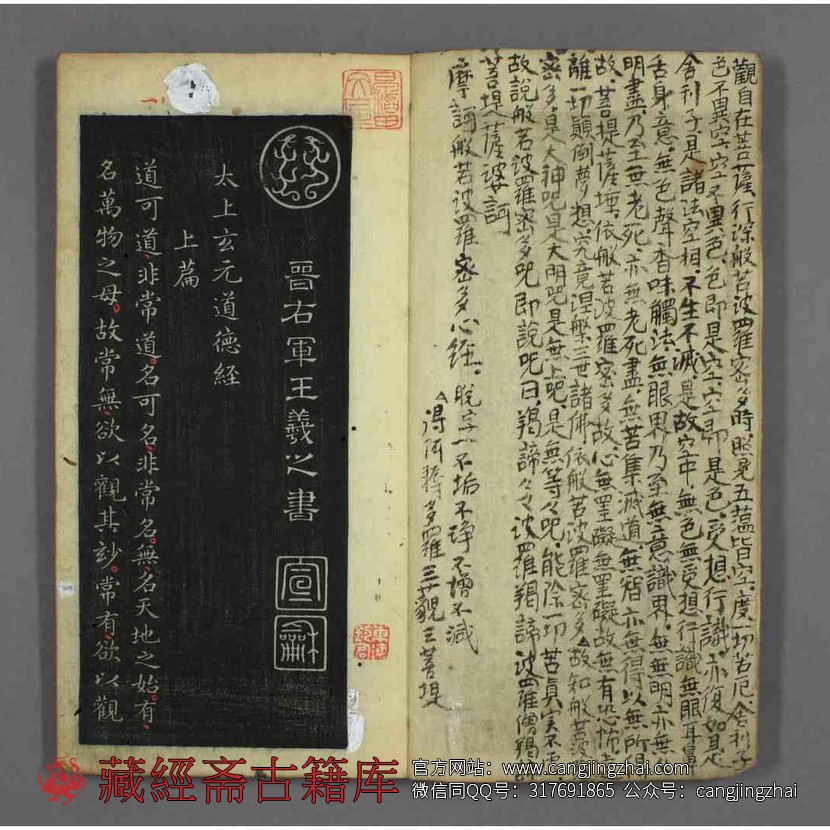 觀自在菩薩行深般若波羅密多時照見五蘊皆空度一切苦厄舍利子
色不異空空不異色色即是空空即是色受想行識亦復如是
舍利子是諸法空相不生不滅是故空中無色無受想行識無眼耳鼻
舌身意無色聲香味觸法無眼界乃至無意識界無無明亦無
明盡乃至無老死亦無老死盡無苦集滅道無智亦無得以無所
故菩提薩埵依般若波羅密多故心無罣礙無罣礙故無有恐怖
離一切顛倒夢想究竟涅槃三世諸佛依般若波羅密多故知般若
密多是大神呪是大明呪是無上呪是無等々呪能除一切苦真實不
故說般若波羅密多呪即說呪曰羯諦々々波羅羯諦波羅僧羯
菩提薩婆訶
摩訶般若波羅密多心經。脫字一不垢不淨不增不減
得阿耨多羅三藐三菩提
晉右軍王羲之書
宣
龢
太上玄元道德經
上篇
道可道非常道名可名非常名無名天地之始有
名萬物之母故常無欲以觀其玅常有欲以觀
藏經斋古籍库
官方网站：www.cangjingzhai.com
微信同QQ号：317691865 公众号：cangjingzhai